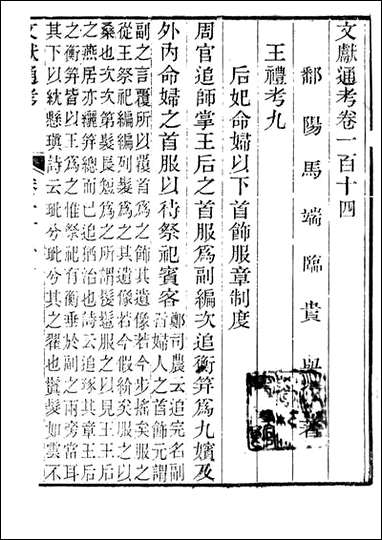 文獻通考卷一百十四
鄱陽馬端臨貴與著
王禮考九
后妃命婦以下首飾服章制度
周官追師掌王后之首服爲副編次追衡筓爲九嬪及
外內命婦之首服以待祭祀賓客
鄭司農云追冠名副
者婦人之首飾元謂
副之言覆所以覆首爲之飾其遺像若今步搖矣服之以
從王祭祀編編列髮爲之其遺像若今假紒矣服之以
桑也次次第髮長短爲之所謂髲髢服之以見王王后
之燕居亦纚筓總而已追猶治也詩云追琢其章王后
之衡筓皆以玉爲之惟祭祀有衡垂於副之兩旁當耳
其下以紞懸瑱詩云玼兮玼兮其之翟也鬒髮如雲不
文獻通考